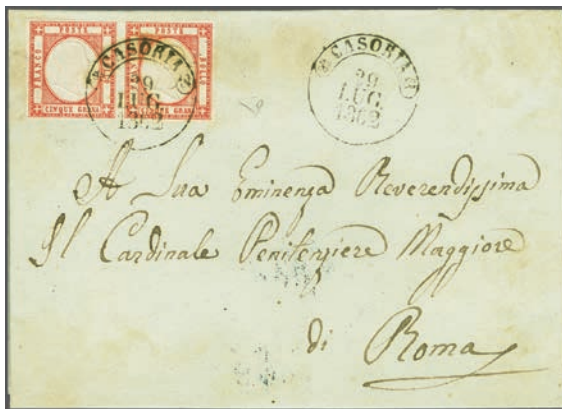 FRANCO POSTE BOLLO
CINQUE GRANA
POSTE
CINQUE GRANA
CASORIA
29
LUG.
1862
CASORIA
29
LUG.
1862
A Sua Eminenza Reverendissima
Il Cardinale Penitenziere Maggiore
di Roma